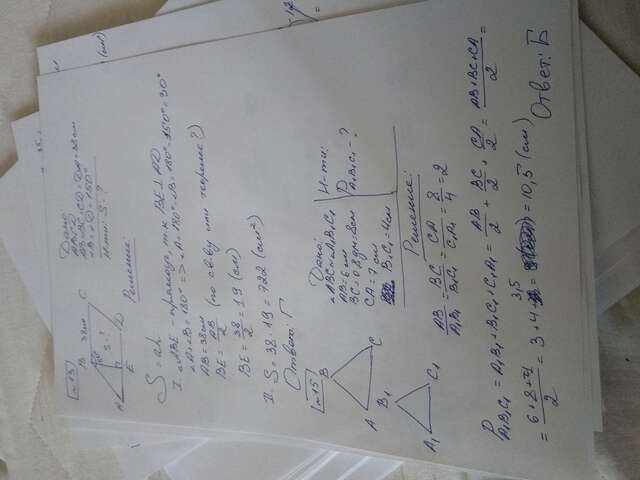 №13
B 38см C
150°
S-?
A E D
Дано:
ABCD
AB=BC=CD=DA=38см
∠B=∠D=150°
Н-ти: S-?
Решение:
S=ah
I. △ABE - прямоуг, т.к BE⊥AD
∠A+∠B=180° => ∠A=180°-∠B=180°-150°=30°
AB=38см
BE=AB/2 (по св-ву или теореме?)
BE=38/2=19(см)
II. S=38·19=722(см²)
Ответ: Г
№15
B
A C
B₁
A₁ C₁
Дано:
△ABC~△A₁B₁C₁
AB=6см
BC=0,8дм=8см
CA=7см
B₁C₁=4см
Н-ти:
P A₁B₁C₁-?
Решение:
AB/A₁B₁=BC/B₁C₁=CA/C₁A₁=8/4=2
P A₁B₁C₁=A₁B₁+B₁C₁+C₁A₁=AB/2+BC/2+CA/2=AB+BC+CA/2=
=6+8+7/2=3+4+3,5= =10,5(см)
Ответ: Б